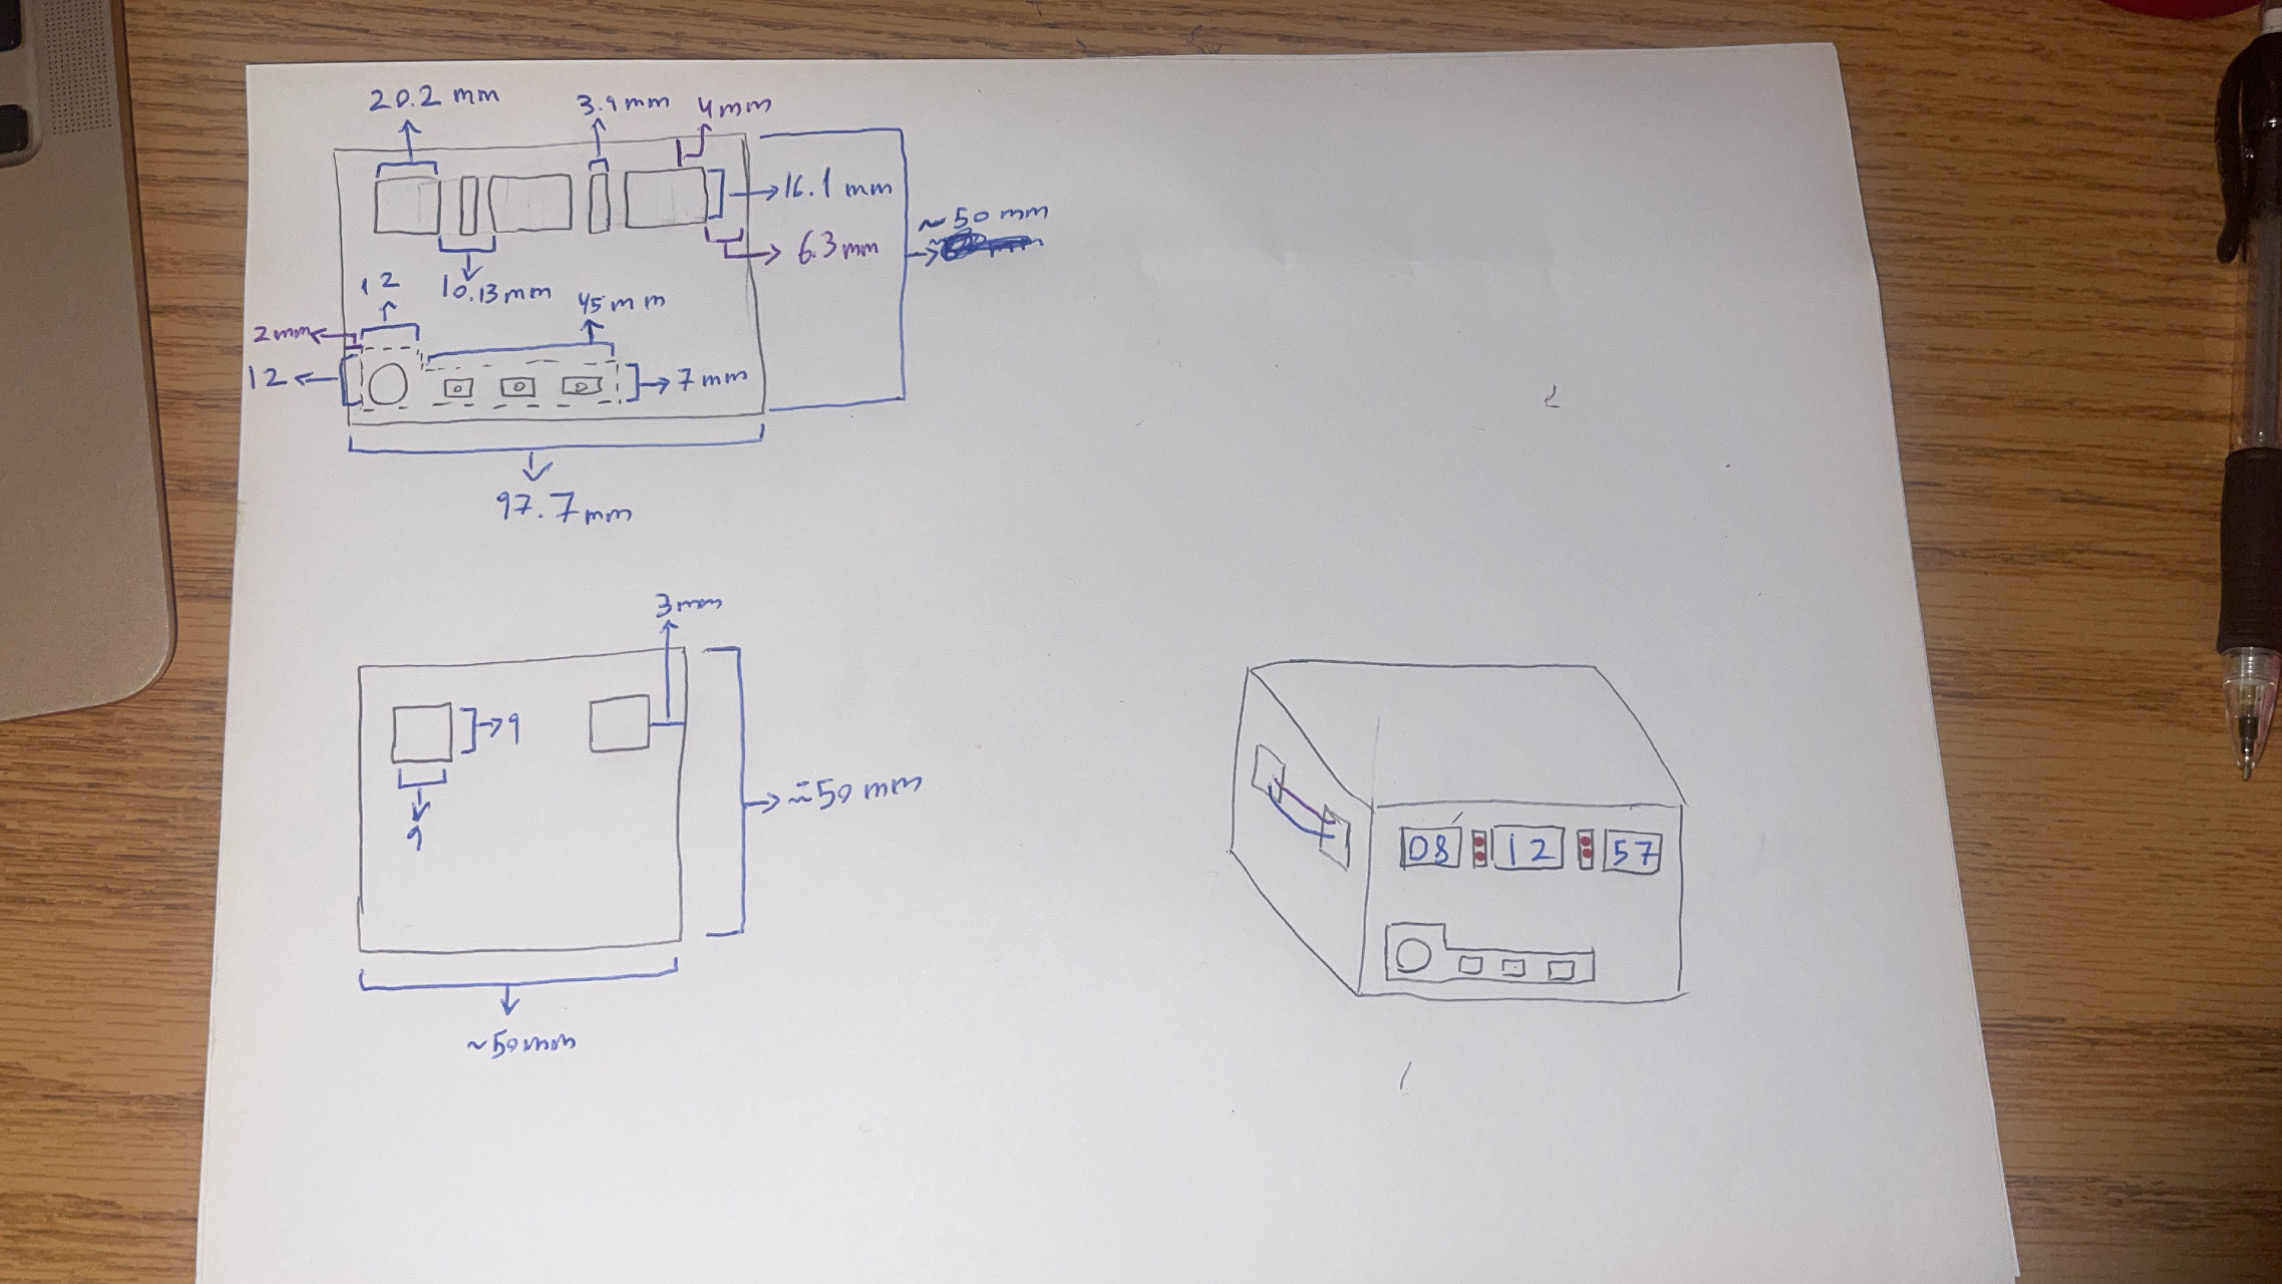 20.2 mm
3.9 mm
4mm
16.1 mm
~ 50 mm
6.3mm
12
10.13mm
45mm
2mm
12
7mm
97.7mm
3mm
9
≈50 mm
9
08 12 57
~50mm